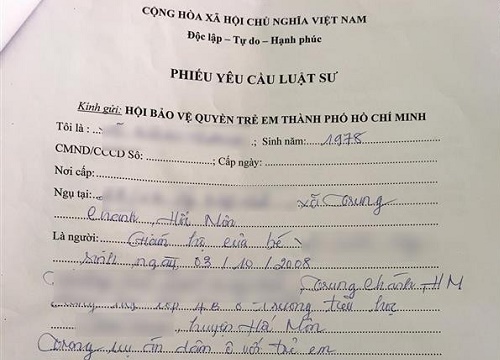 CỘNG HÒA XÃ HỘI CHỦ NGHĨA VIỆT NAM
Độc lập – Tự do – Hạnh phúc
PHIẾU YÊU CẦU LUẬT SƯ
Kính gửi: HỘI BẢO VỆ QUYỀN TRẺ EM THÀNH PHỐ HỒ CHÍ MINH
Tôi là : ; Sinh năm: 1978
CMND/CCCD Số: ; Cấp ngày:
Nơi cấp:
Ngụ tại: xã Trung
Chánh, Hóc Môn
Là người: Giám hộ của bé
sinh ngày 03/10/2008
Trung Chánh, HM
lớp 4B trường tiểu học
, huyện Hóc Môn
Trong vụ án dâm ô với trẻ em